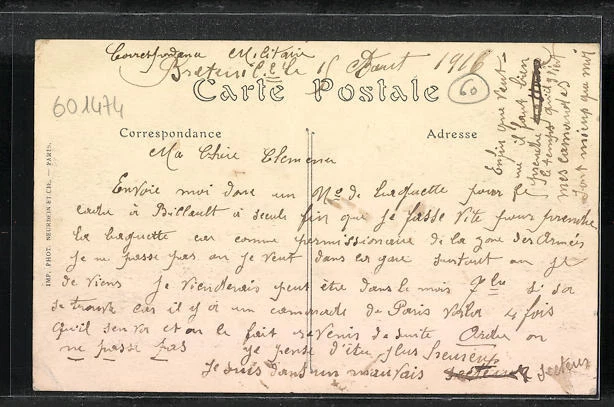 Correspondance Militaire
Breteuil le 15 Aout 1916
Carte Postale
60
601474
Correspondance
Adresse
Ma Chère Clemence
Envoie moi donc un No de baguette pour le
cadre à Billault à seule fin que je fasse vite pour prendre
la baguette car comme permissionaire de la zone des Armés
je ne passe pas ou je veut dans la gare surtout ou je
de viens je viendrais peut être dans le mois si sa
se trouve car il y à un camarade de Paris 4 fois
qu'il sen va et on le fait revenir de suite Ordre on
ne passe pas je pense d'être plus heureux
je suis dans un mauvais secteur
Enfin que veut-
il faut bien
prendre
le temps qu'il
mes camarades
sont moins que moi
IMP. PHOT. NEURDEIN ET CIE. — PARIS.